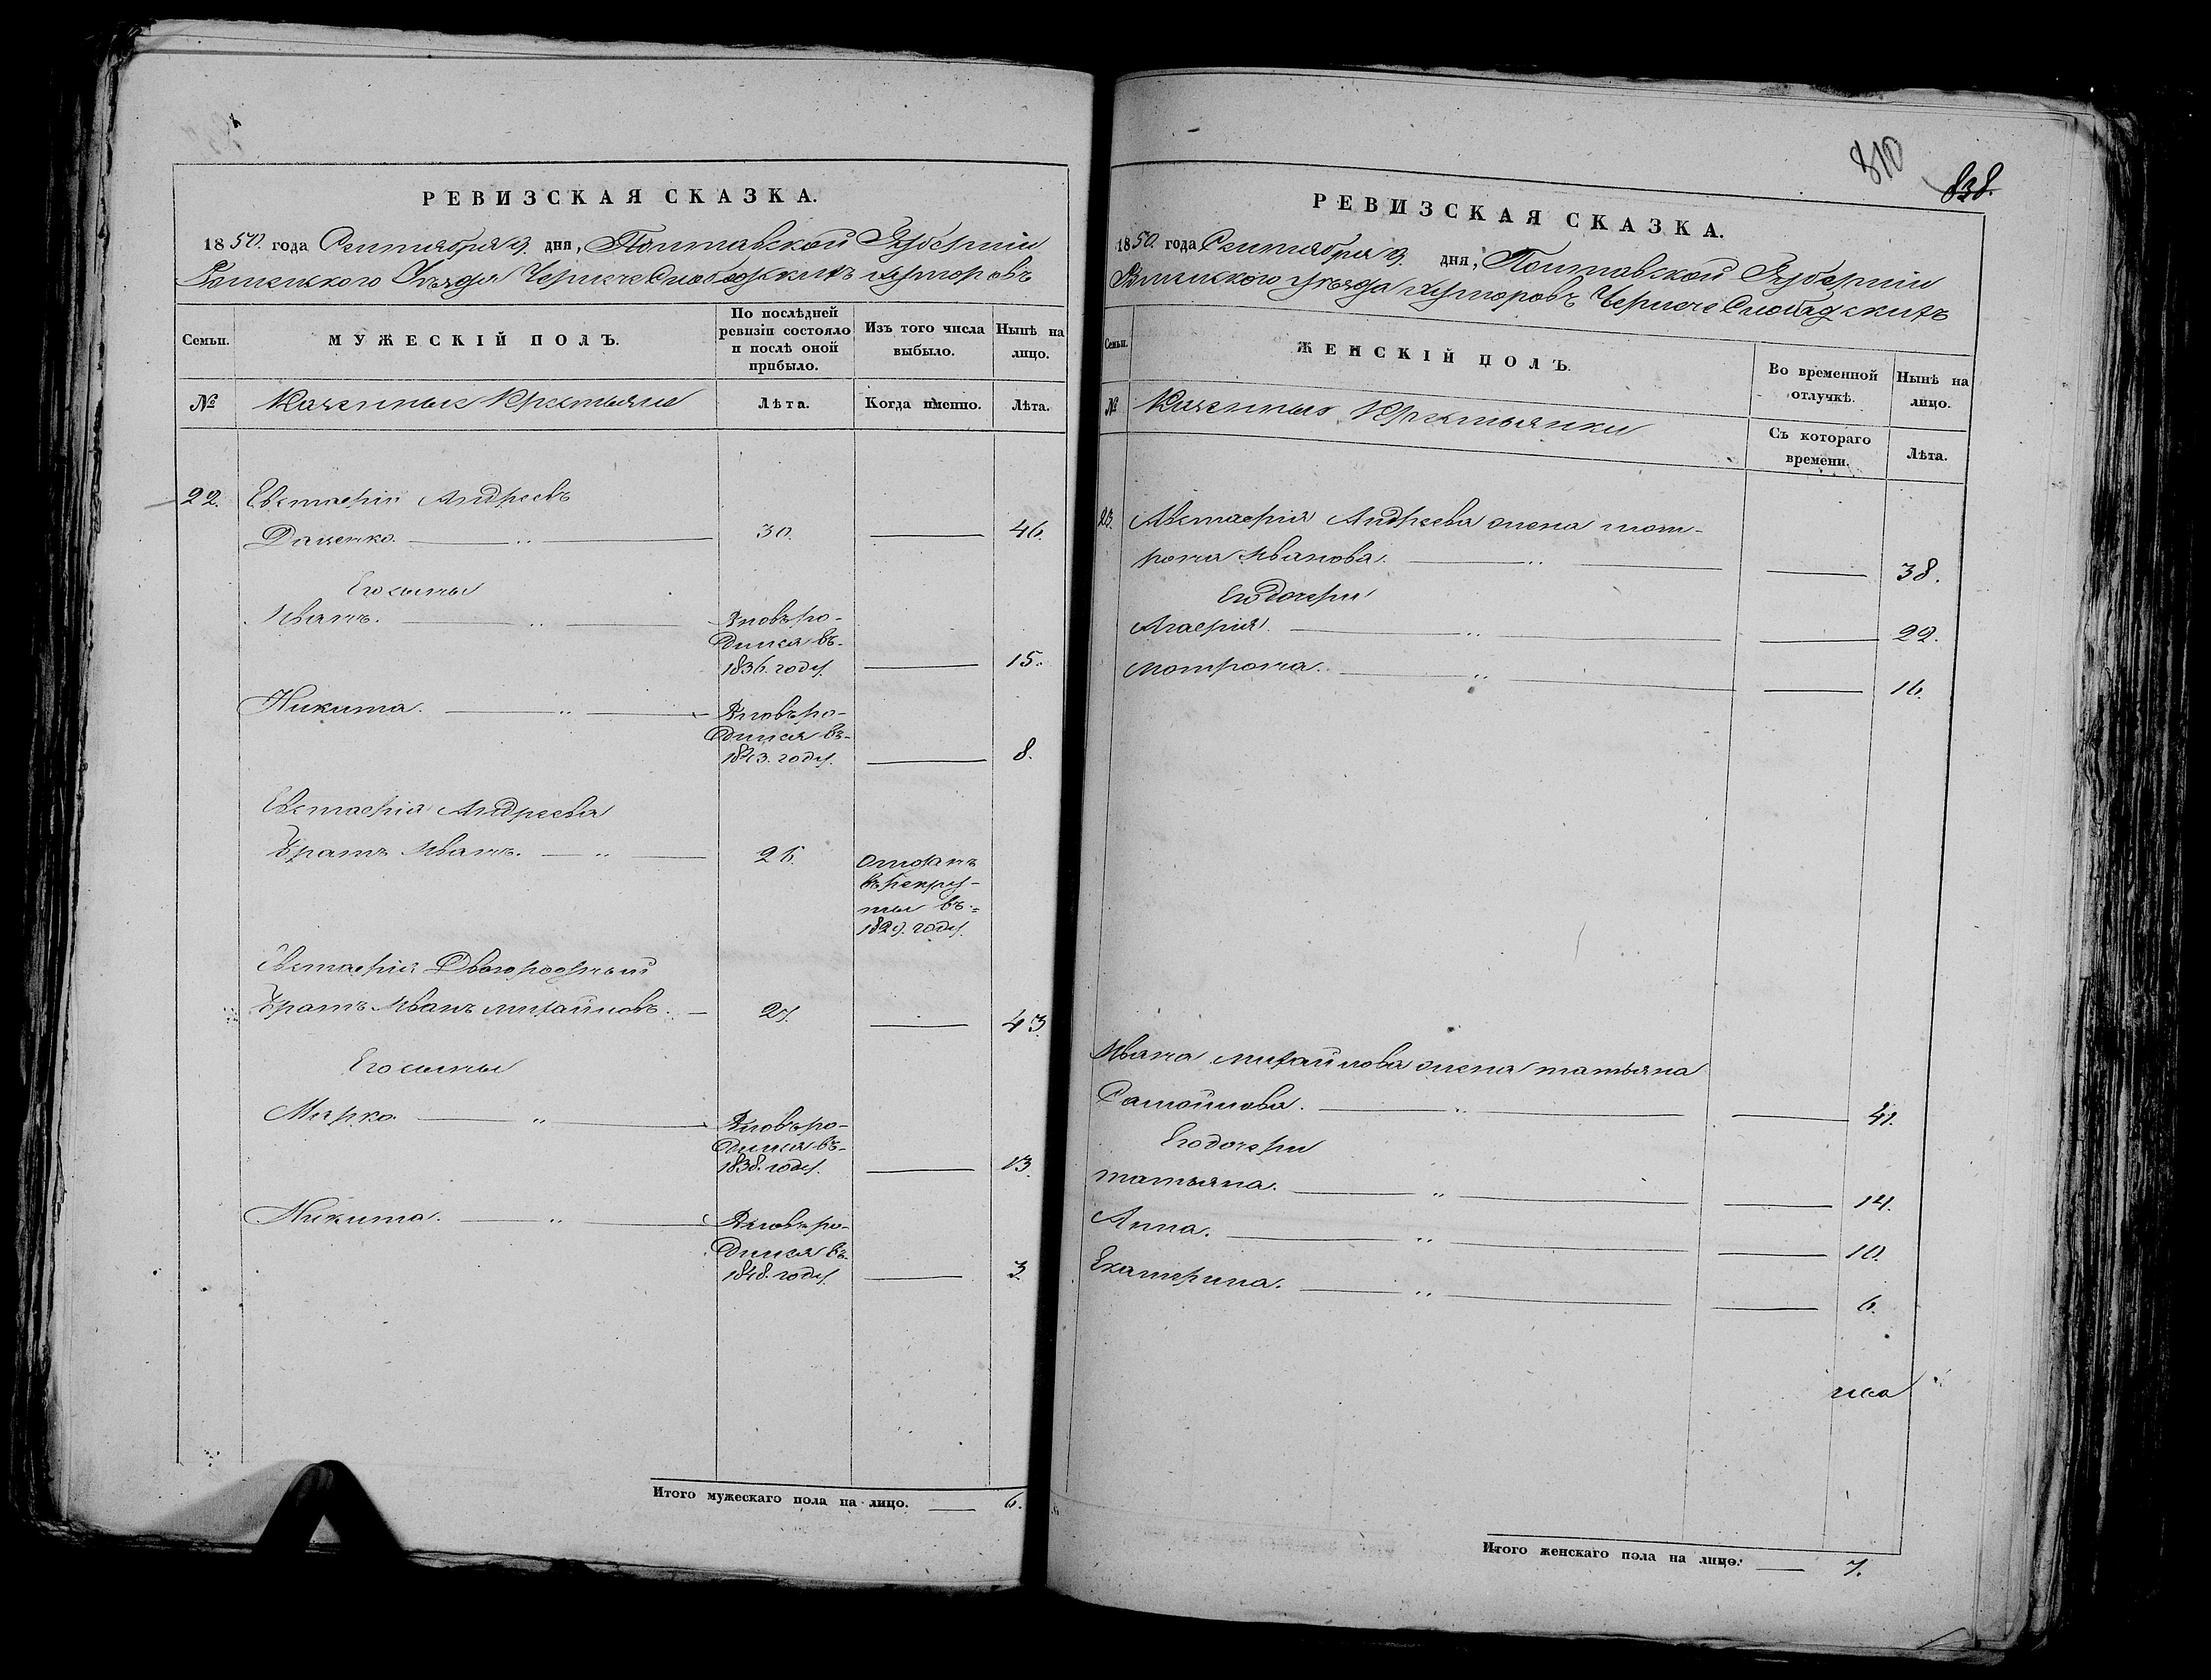 РЕВИЗСКАЯ СКАЗКА.
1850. года Сентября 9. дня, Полтавской Губернiи
Роменского Уѣзда Чернече Слободскихъ хуторовъ
Семьи.
МУЖЕСКIЙ ПОЛЪ.
По послѣдней
ревизiи состояло
и послѣ оной
прибыло.
Изъ того числа
выбыло.
Нынѣ на
лицо.
№
Казенные Крестьяне
Лѣта.
Когда именно.
Лѣта.
22. Евстафiй Андреевъ
Даценко. 30. 46.
Его сыны
Иванъ. Вновь ро-
дился въ
1836. году. 15.
Никита. Вновь ро-
дился въ
1843. году. 8.
Евстафiя Андреева
братъ Иванъ. 26. Отданъ
въ рекру-
ты въ
году.
Евстафiя Двоюродный
братъ Иванъ Михайловъ. 27. 43.
Его сыны
Марко. Вновь ро-
дился въ
1838. году. 13.
Никита. Вновь ро-
дился въ
1848. году. 3.
Итого мужескаго пола на лицо. 6.
810
838.
РЕВИЗСКАЯ СКАЗКА.
1850. года Сентября 9. дня, Полтавской Губернiи
Роменского уѣзда хуторовъ Чернече Слободскихъ
Семьи.
ЖЕНСКIЙ ПОЛЪ.
Во временной
отлучкѣ.
Нынѣ на
лицо.
№
Казенныя Крестьянки
Съ котораго
времени.
Лѣта.
Евстафiя Андреева жена Мот-
рона Иванова. 38.
Его дочери
Агафiя. 22.
Мотрона. 16.
Ивана Михайлова жена Татьяна
Самойлова. 41.
Его дочери
Татьяна. 14.
Анна. 10.
Екатерина. 6.
Итого женскаго пола на лицо. 7.